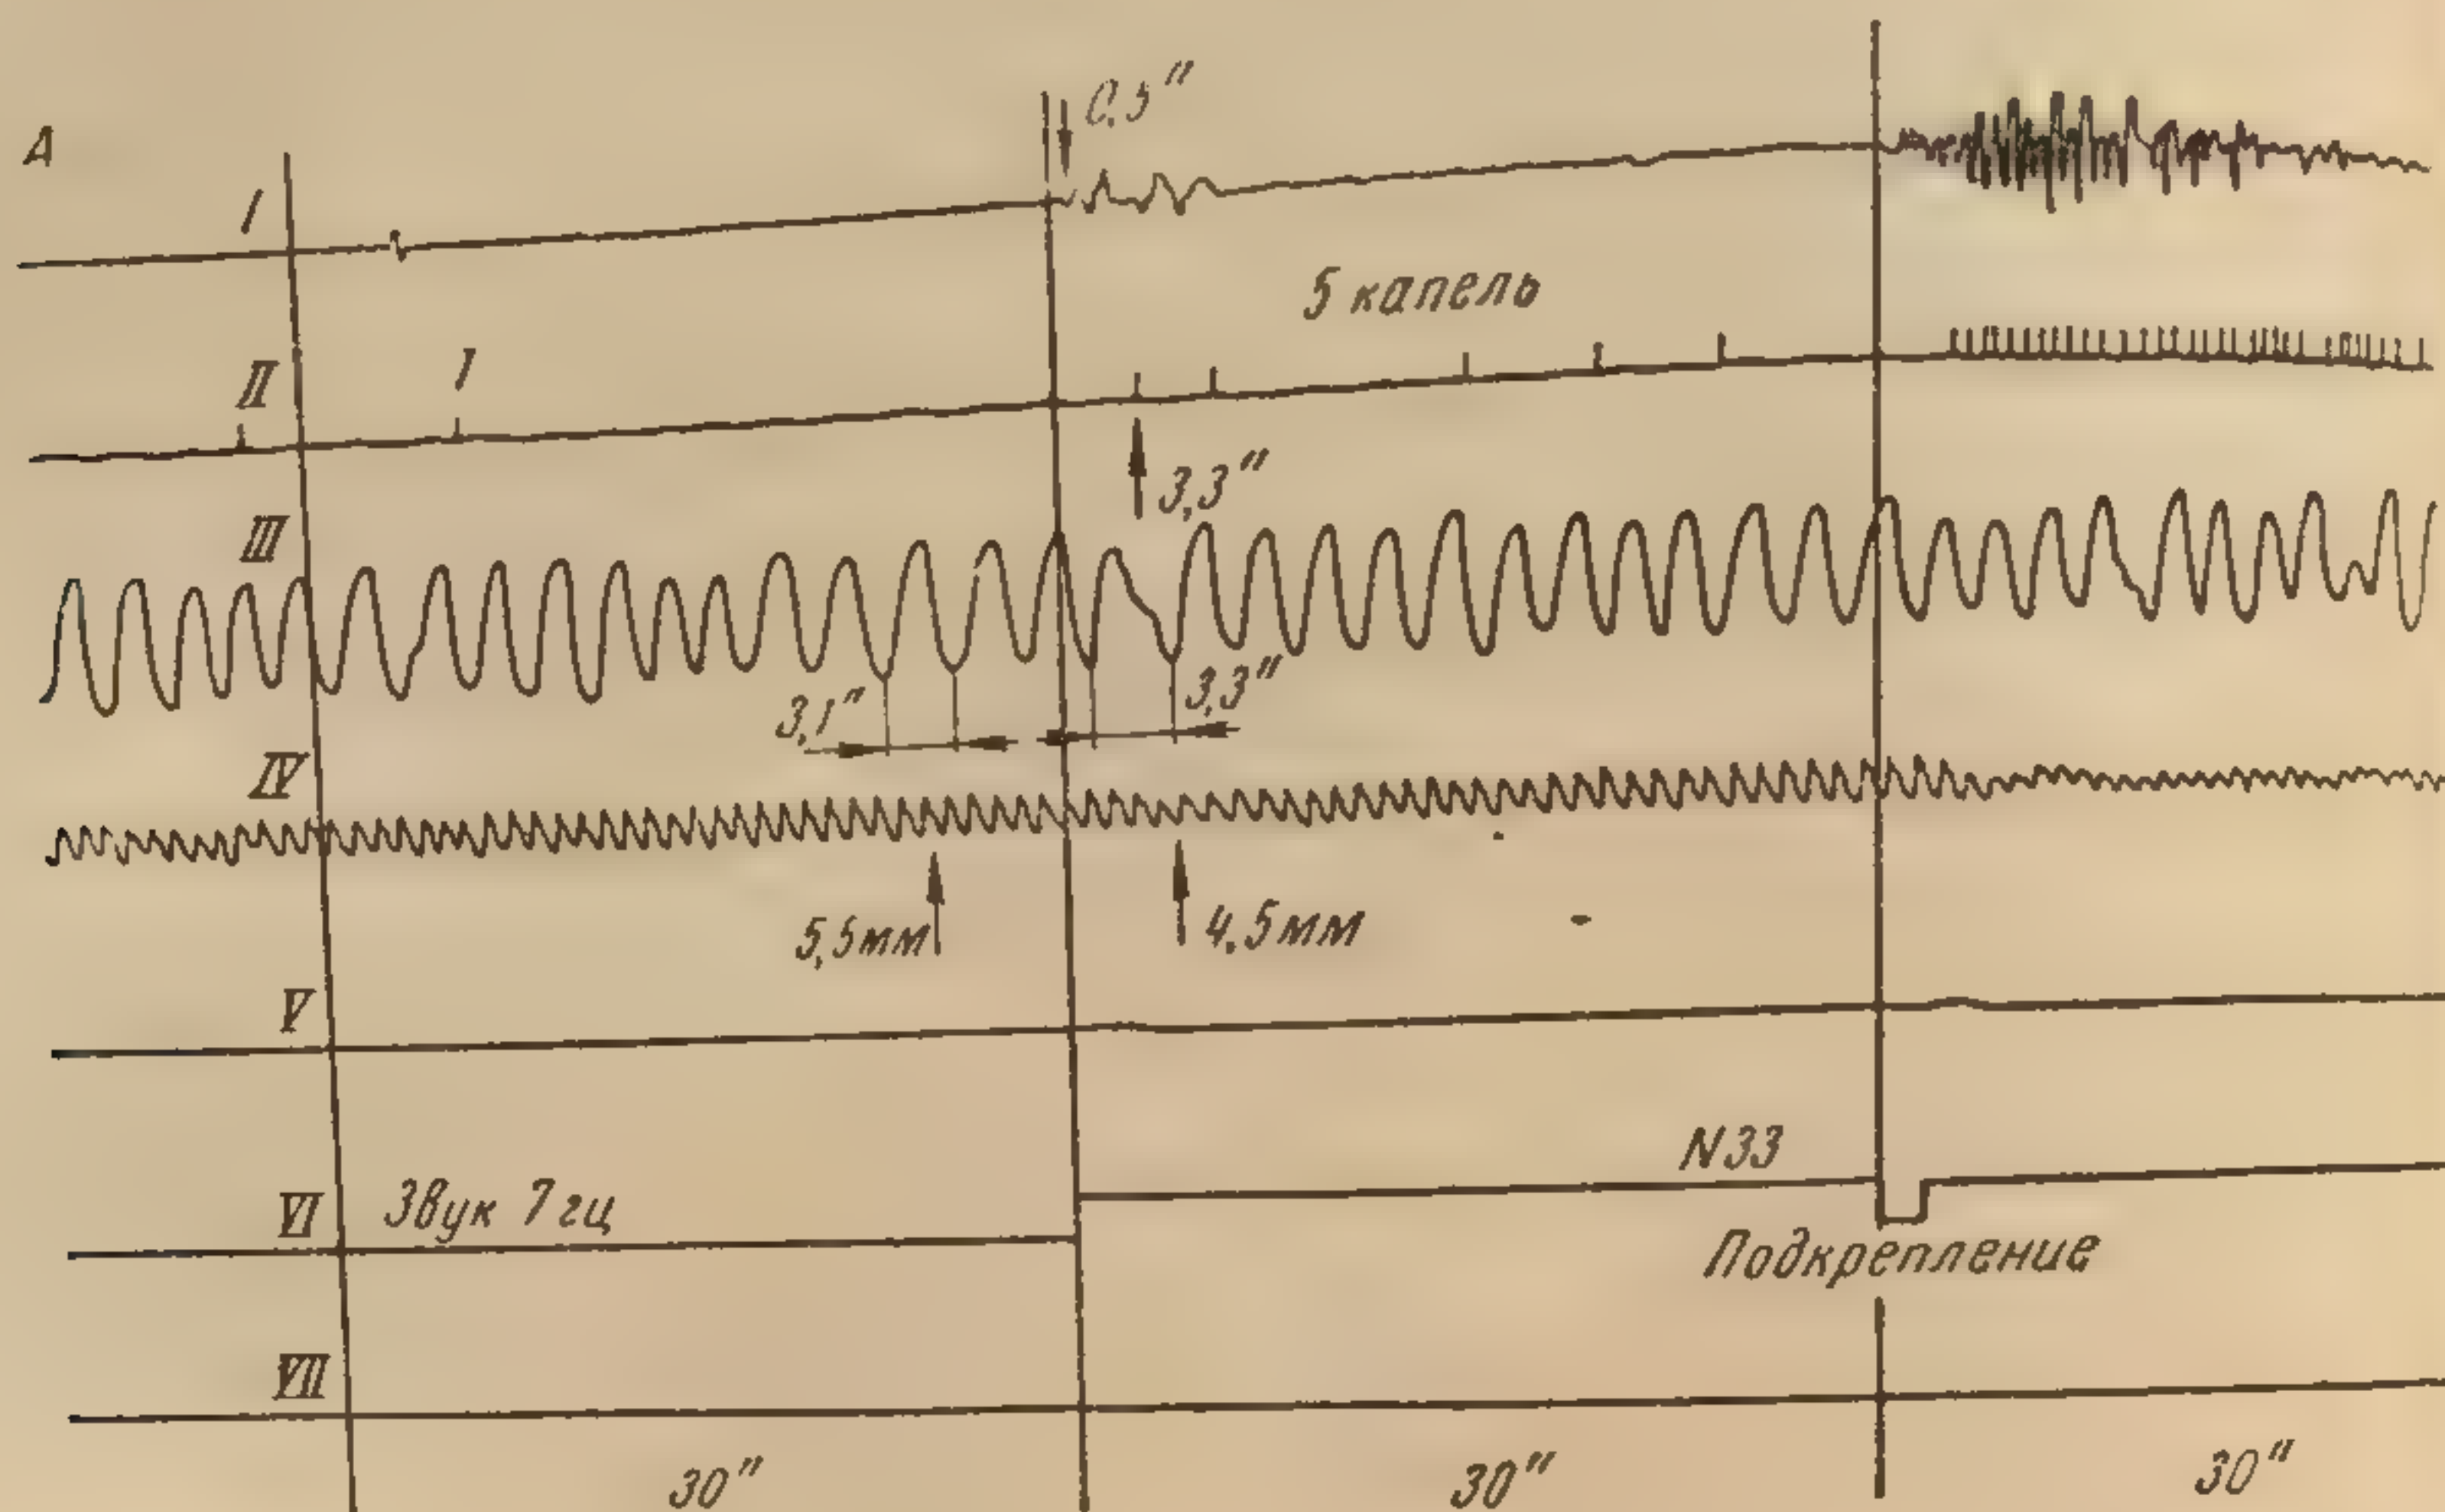 А
I
0,5"
5 капель
II
I
3,3"
III
3,1"
3,3"
IV
5,5мм
4,5мм
V
N33
VI
Звук 7гц
Подкрепление
VII
30"
30"
30"